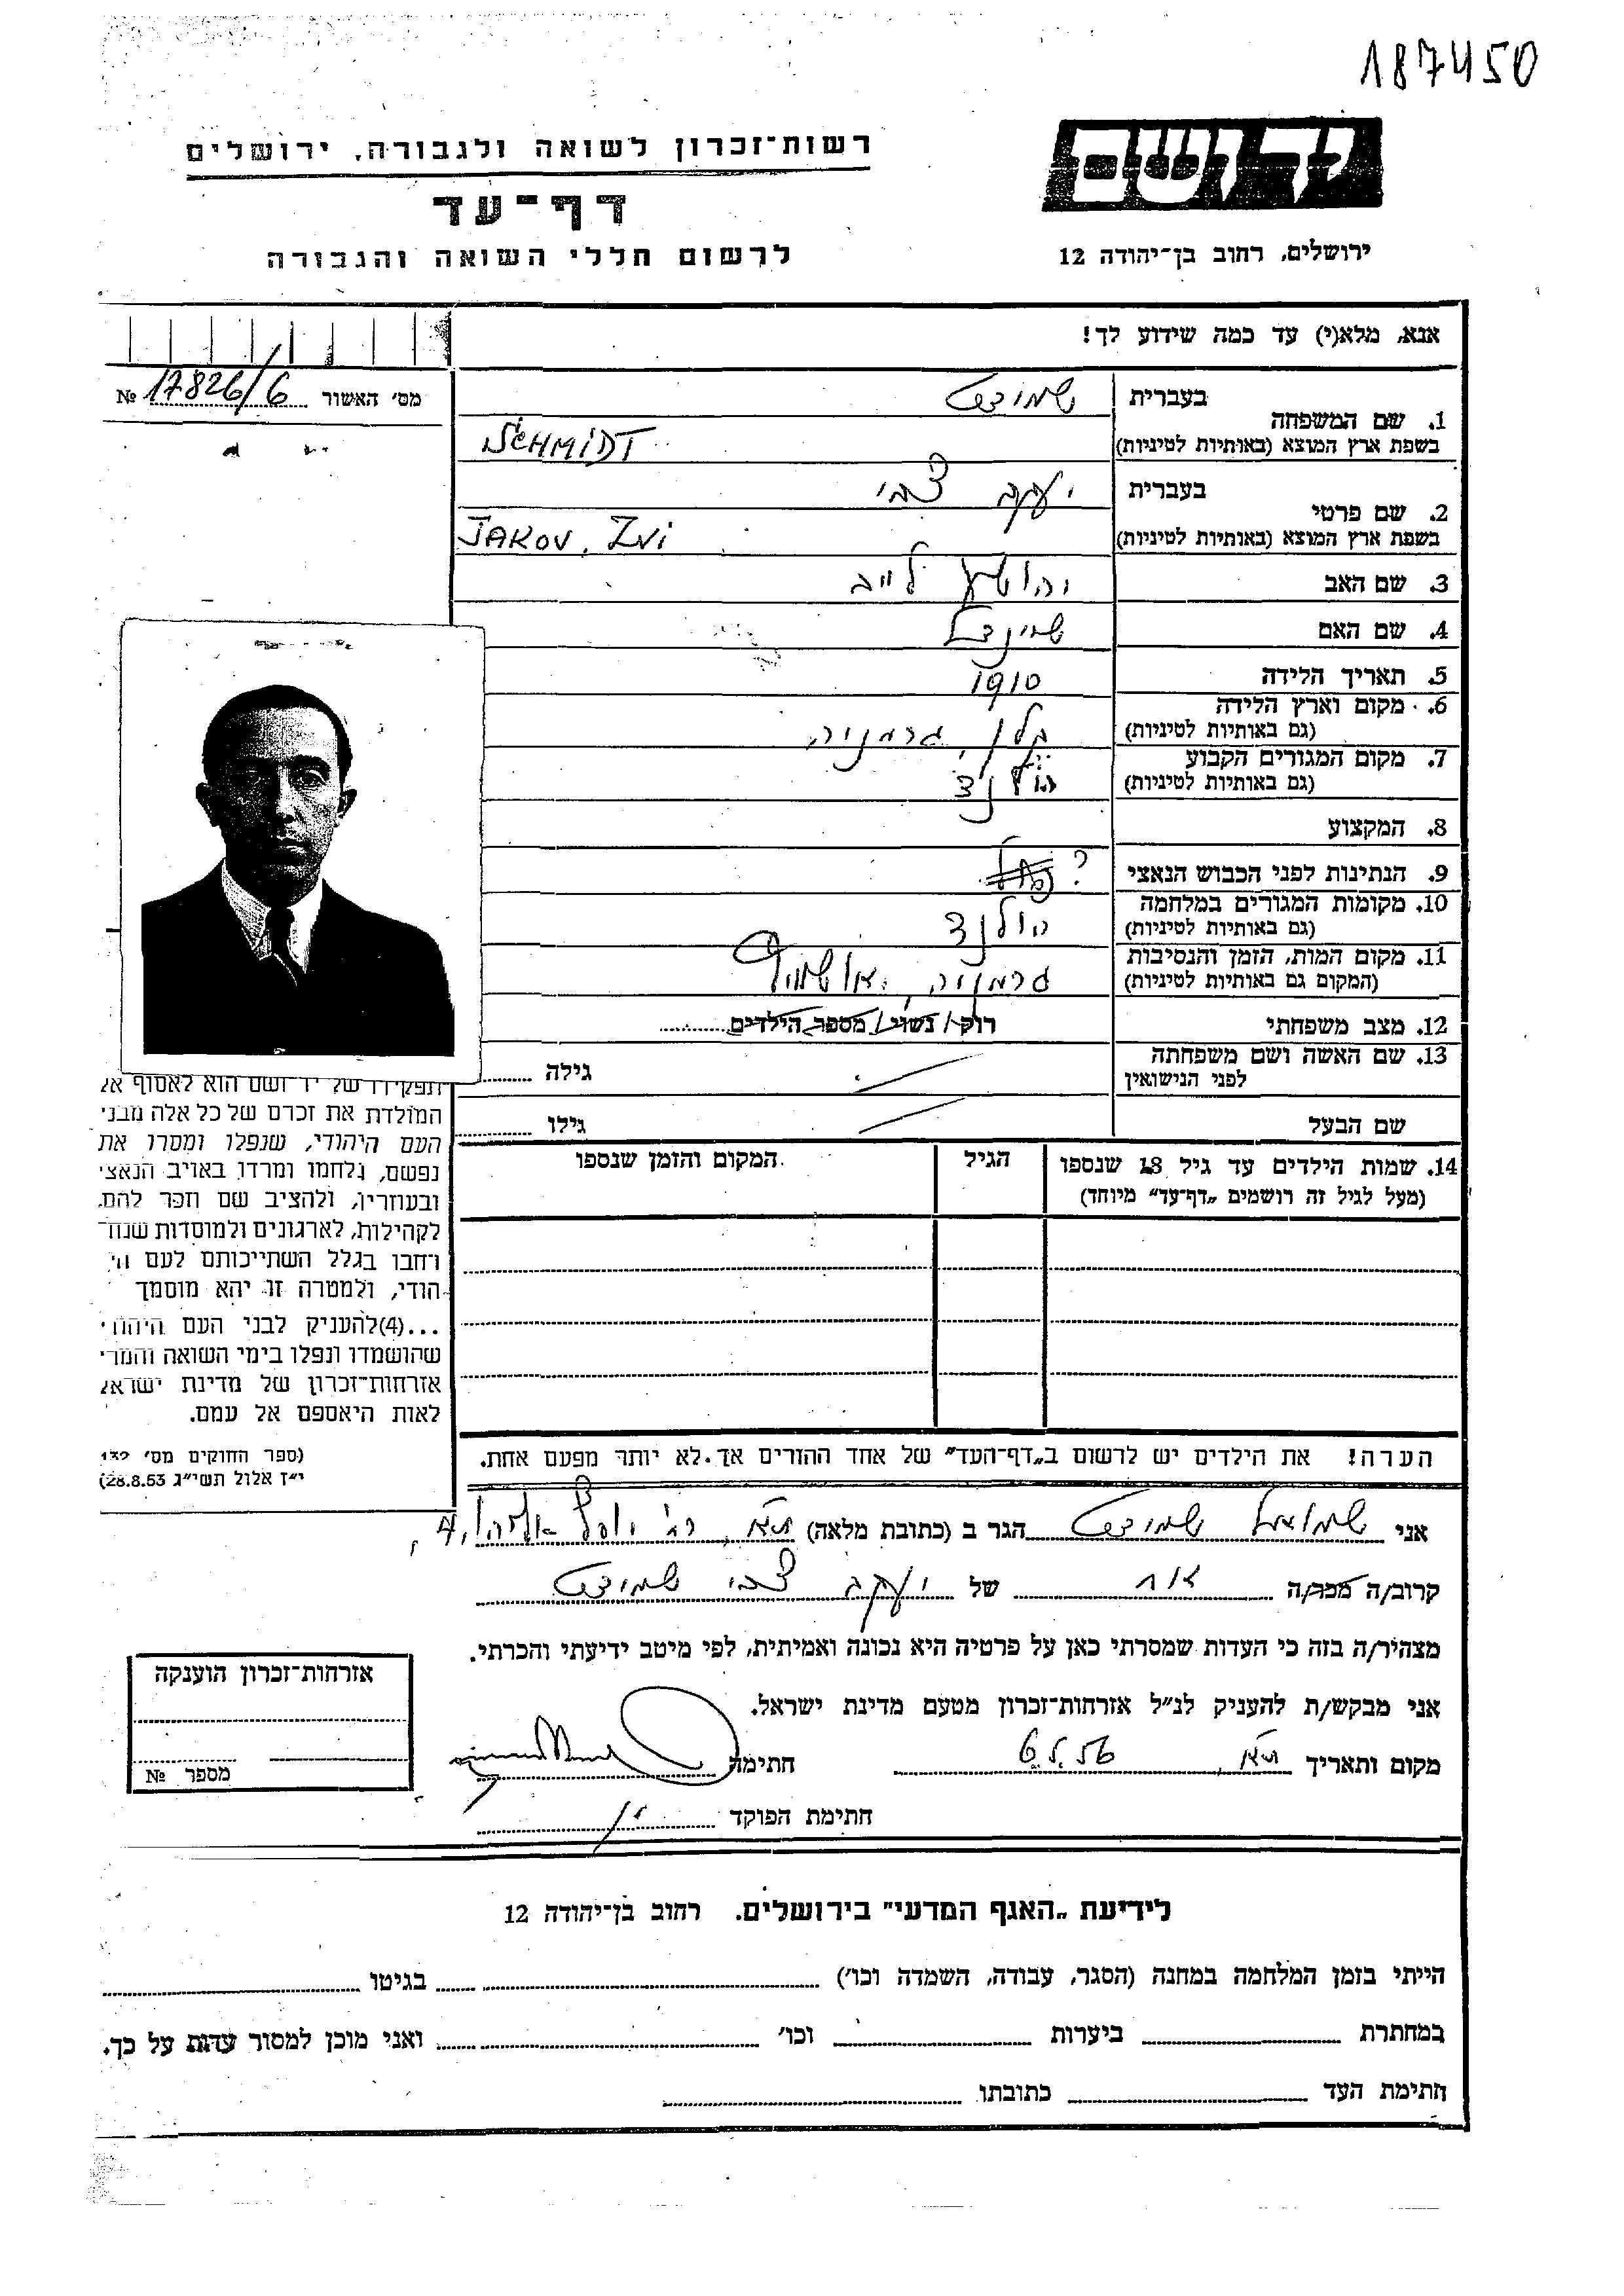 187450
יד ושם
רשות־זכרון לשואה ולגבורה, ירושלים
דף־עד
לרשום חללי השואה והגבורה
ירושלים, רחוב בן־יהודה 12
אנא, מלא(י) עד כמה שידוע לך!
מס׳ האשור 17826/6 №
1. שם המשפחה
בעברית שמידט
בשפת ארץ המוצא (באותיות לטיניות) SCHMIDT
2. שם פרטי
בעברית יעקב צבי
בשפת ארץ המוצא (באותיות לטיניות) JAKOV, Zvi
3. שם האב יהושע לייב
4. שם האם שיינדל
5. תאריך הלידה 1910
6. מקום וארץ הלידה קלן, גרמניה
(גם באותיות לטיניות)
7. מקום המגורים הקבוע הולנד
(גם באותיות לטיניות)
8. המקצוע
9. הנתינות לפני הכבוש הנאצי ?
10. מקומות המגורים במלחמה הולנד
(גם באותיות לטיניות)
11. מקום המות, הזמן והנסיבות גרמניה, אושוויץ
(המקום גם באותיות לטיניות)
12. מצב משפחתי רוק/נשוי/מספר הילדים
13. שם האשה ושם משפחתה
לפני הנישואין גילה
שם הבעל גילו
14. שמות הילדים עד גיל 18 שנספו הגיל המקום והזמן שנספו
(מעל לגיל זה רושמים „דף־עד” מיוחד)
תפקידו של יד ושם הוא לאסוף אל
המולדת את זכרם של כל אלה מבני
העם היהודי, שנפלו ומסרו את
נפשם, נלחמו ומרדו באויב הנאצי
ובעוזריו, ולהציב שם וזכר להם,
לקהילות, לארגונים ולמוסדות שנח־
רבו בגלל השתייכותם לעם הי
הודי, ולמטרה זו יהא מוסמך
...(4) להעניק לבני העם היהודי
שהושמדו ונפלו בימי השואה והמרי
אזרחות־זכרון של מדינת ישראל
לאות היאספם אל עמם.
(ספר החוקים מס׳ 132
י״ז אלול תשי״ג 28.8.53)
הערה! את הילדים יש לרשום ב„דף־העד” של אחד ההורים אך לא יותר מפעם אחת.
אני שמואל שמידט הגר ב (כתובת מלאה) ת״א, רח׳ 4
קרוב/ה מכר/ה אח של יעקב צבי שמידט
מצהיר/ה בזה כי העדות שמסרתי כאן על פרטיה היא נכונה ואמיתית, לפי מיטב ידיעתי והכרתי.
אני מבקש/ת להעניק לנ״ל אזרחות־זכרון מטעם מדינת ישראל.
מקום ותאריך ת״א, חתימה
חתימת הפוקד
אזרחות־זכרון הוענקה
מספר №
לידיעת „האגף המדעי” בירושלים. רחוב בן־יהודה 12
הייתי בזמן המלחמה במחנה (הסגר, עבודה, השמדה וכו׳) בגיטו
במחתרת ביערות וכו׳ ואני מוכן למסור עדות על כך.
חתימת העד כתובתו